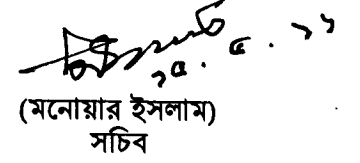 ১৫.৫.১১
(মনোয়ার ইসলাম)
সচিব